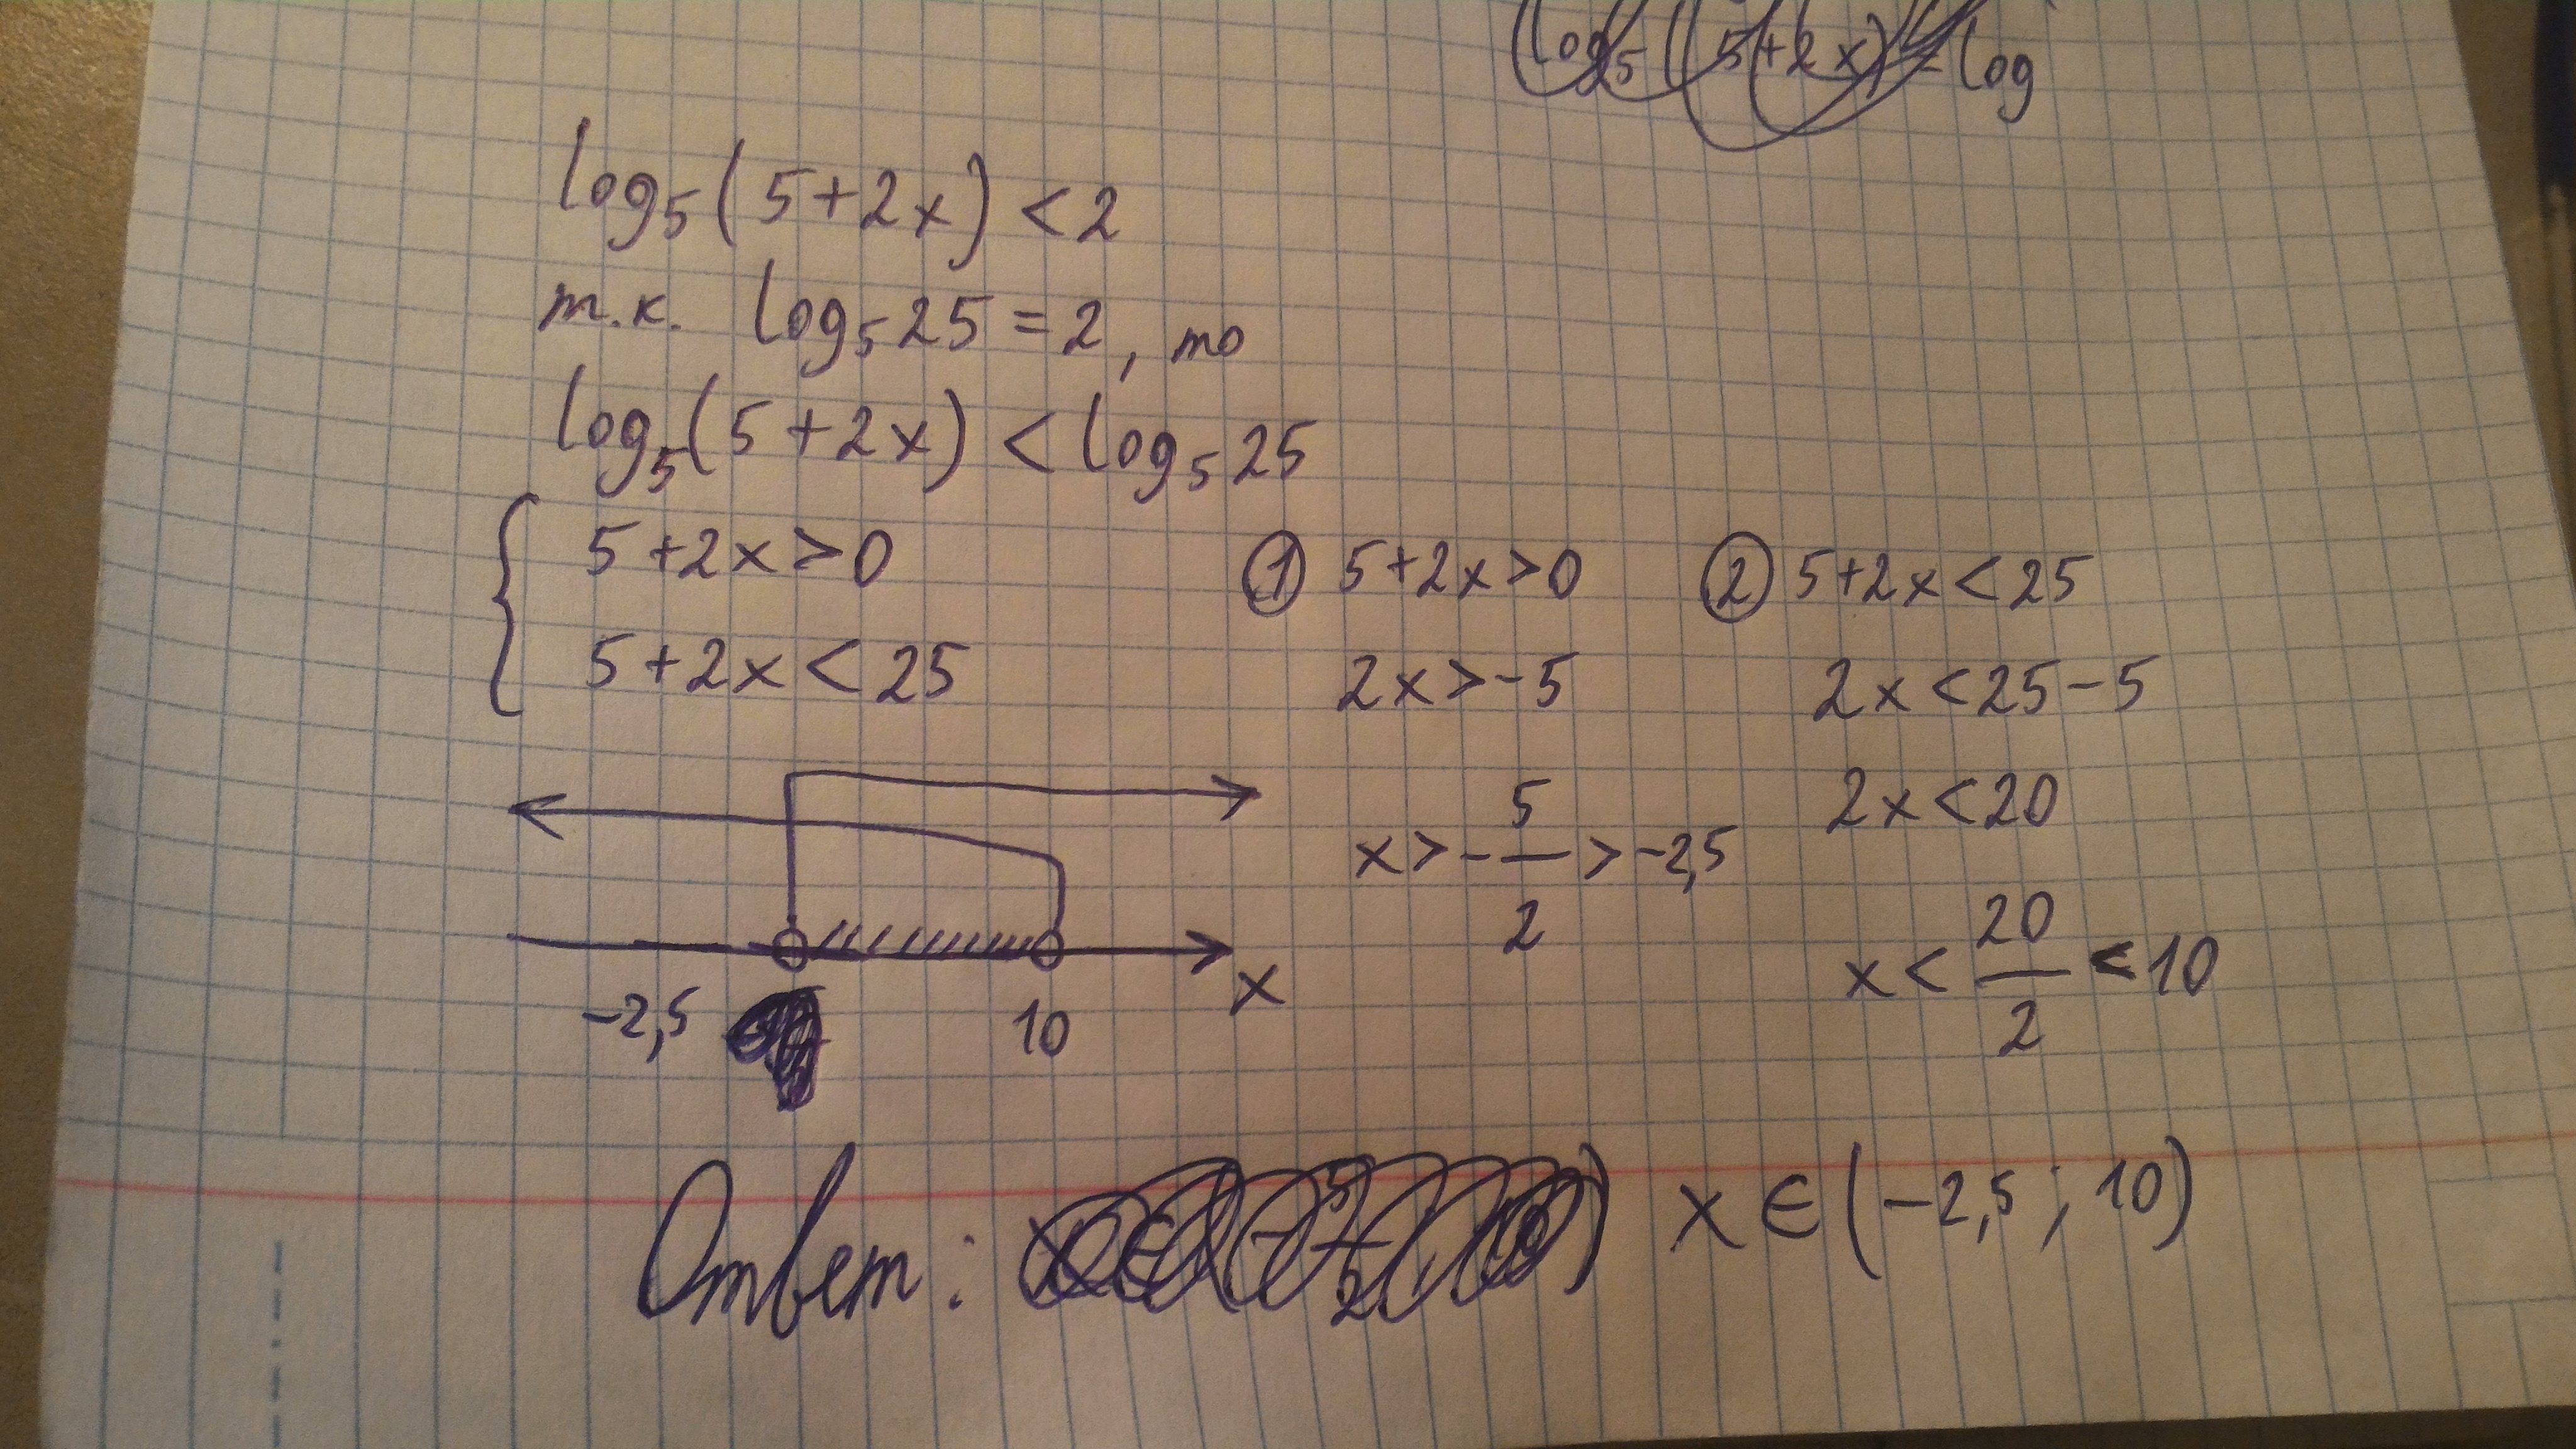 log₅(5+2x) = log
log₅(5+2x) < 2
т.к. log₅25 = 2, то
log₅(5+2x) < log₅25
{ 5+2x>0
5+2x<25
① 5+2x>0
2x>-5
x>-5/2>-2,5
② 5+2x<25
2x<25-5
2x<20
x<20/2<10
-2,5 10 x
Ответ: x∈(-2,5; 10)